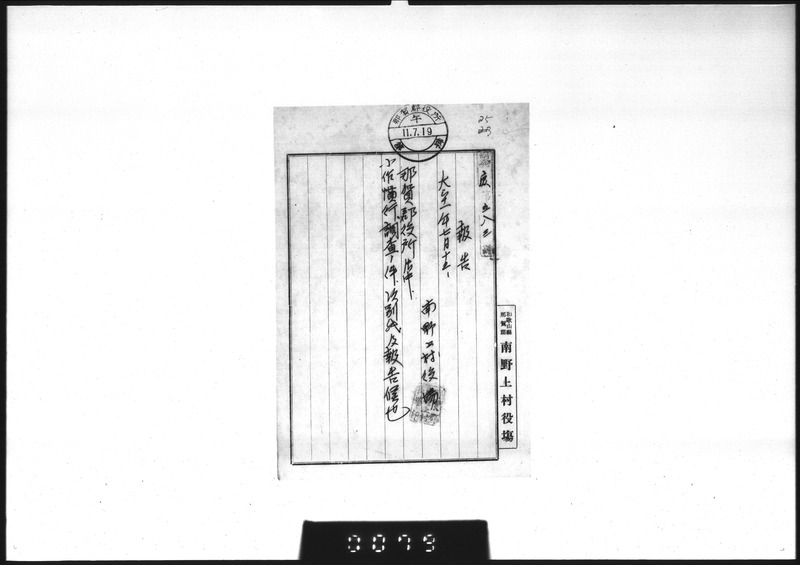 那賀郡役所
午
11.7.19
25
報告
大正十一年七月十三日
南野上村役場
那賀郡役所 御中
小作慣行調査ノ件 次別紙及報告候也
和歌山縣
那賀郡
南野上村役場
0079